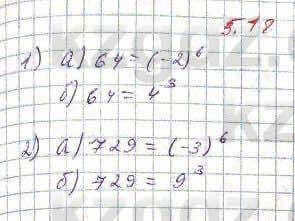 5.18
1) а) 64 = (-2)⁶
б) 64 = 4³
2) а) 729 = (-3)⁶
б) 729 = 9³